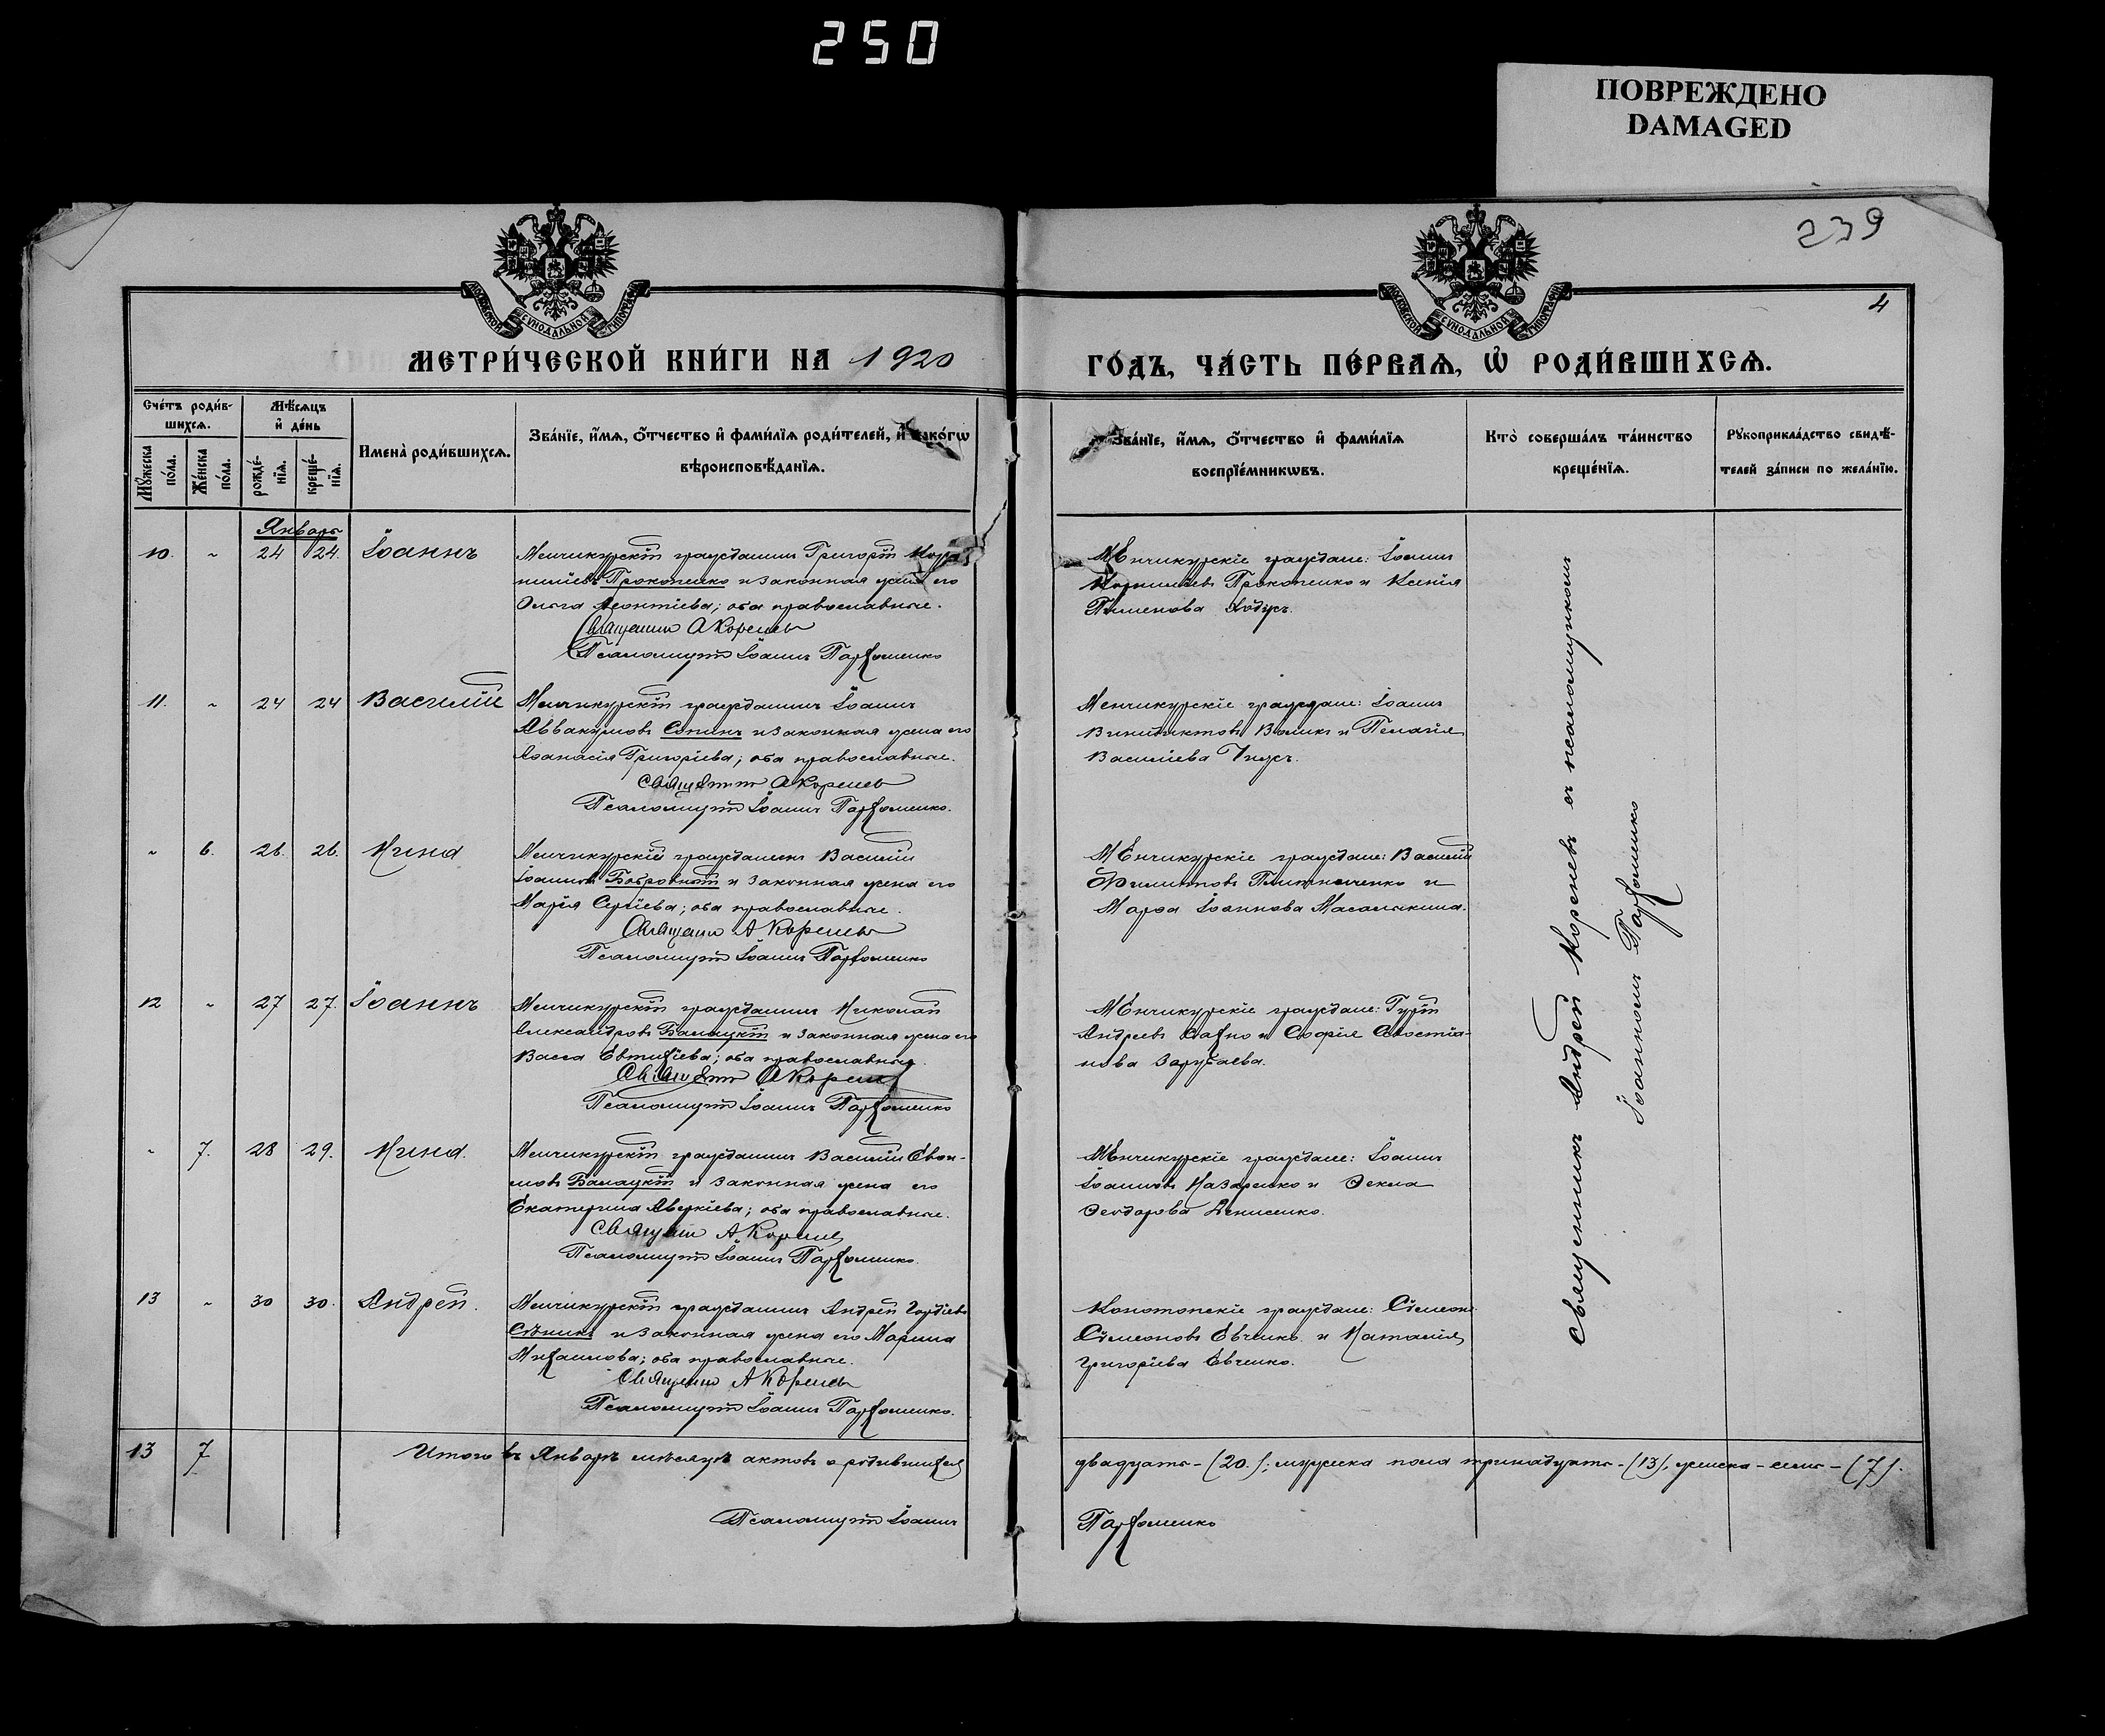 250
ПОВРЕЖДЕНО
DAMAGED
239
4
МОСКОВСКОЙ СУНОДАЛЬНОЙ ТИПОГРАФІИ
МОСКОВСКОЙ СУНОДАЛЬНОЙ ТИПОГРАФІИ
МЕТРИ́ЧЕСКОЙ КНИ́ГИ НА 1920 ГО́ДЪ, ЧА́СТЬ ПЕ́РВАѦ, Ѡ҆ РОДИ́ВШИХСѦ.
Сче́тъ роди́вшихсѧ.
Мꙋ́жеска по́ла.
Же́нска по́ла.
Мѣ́сѧцъ и҆ де́нь
рожде́нїѧ.
креще́нїѧ.
И҆мена̀ роди́вшихсѧ.
Зва́нїе, и҆́мѧ, ѻ҆́тчество и҆ фами́лїѧ роди́телей, и҆ како́гѡ
вѣроисповѣ́данїѧ.
Зва́нїе, и҆́мѧ, ѻ҆́тчество и҆ фами́лїѧ
воспрїе́мникѡвъ.
Кто̀ соверша́лъ та́инство
креще́нїѧ.
Рꙋкоприкла́дство свидѣ́-
телей за́писи по жела́нїю.
Январь
10. " 24 24. Іоаннъ
Менчикурскій гражданинъ Григорій Корни-
ниліевъ Прокопенко и законная жена его
Ольга Леонтіева; оба православные.
Священн А Кореневъ
Псаломщикъ Іоаннъ Пархоменко
Менчикурскіе граждане: Іоаннъ
Корниліевъ Прокопенко и Ксенія
Пименова
11. " 24 24 Василій
Менчикурскій гражданинъ Іоаннъ
Аввакумовъ Сопинъ и законная жена его
Аѳанасія Григоріева; оба православные.
Священн А Кореневъ
Псаломщикъ Іоаннъ Пархоменко.
Менчикурскіе граждане: Іоаннъ
Воликъ и Пелагія
Василіева
" 6. 26. 26. Нина
Менчикурскій гражданинъ Василій
Іоанновъ Бобровный и законная жена его
Марія Сергіева; оба православные.
Священн А Кореневъ
Псаломщикъ Іоаннъ Пархоменко
Менчикурскіе граждане: Василій
Филиповъ и
Марѳа Іоаннова Масалыкина.
12 " 27 27. Іоаннъ
Менчикурскій гражданинъ Николай
Александровъ Балацкій и законная жена его
Васса Евтихіева; оба православные.
Священн А Кореневъ
Псаломщикъ Іоаннъ Пархоменко
Менчикурскіе граждане: Гурій
Андреевъ Сахно и Софія Савостіа-
нова Зарубаева.
" 7. 28 29. Нина.
Менчикурскій гражданинъ Василій
Балацкій и законная жена его
Екатерина Аверкіева; оба православные.
Священн А Кореневъ
Псаломщикъ Іоаннъ Пархоменко.
Менчикурскіе граждане: Іоаннъ
Іоанновъ Назаренко и Ѳекла
Ѳеодорова Денисенко.
13 " 30 30. Андрей.
Менчикурскій гражданинъ Андрей Гордіевъ
и законная жена его Марина
Михаилова; оба православные.
Священн А Кореневъ
Псаломщикъ Іоаннъ Пархоменко.
Конотопскіе граждане: Сѵмеонъ
Сѵмеоновъ Евченко и Наталія
Григоріева Евченко.
Священникъ Андрей Кореневъ съ псаломщикомъ
Іоанномъ Пархоменко
13 7 Итого въ Январѣ мѣсяцѣ актовъ о родившихся двадцать - (20.); мужеска пола тринадцать - (13), женска - семь - (7).
Псаломщикъ Іоаннъ Пархоменко